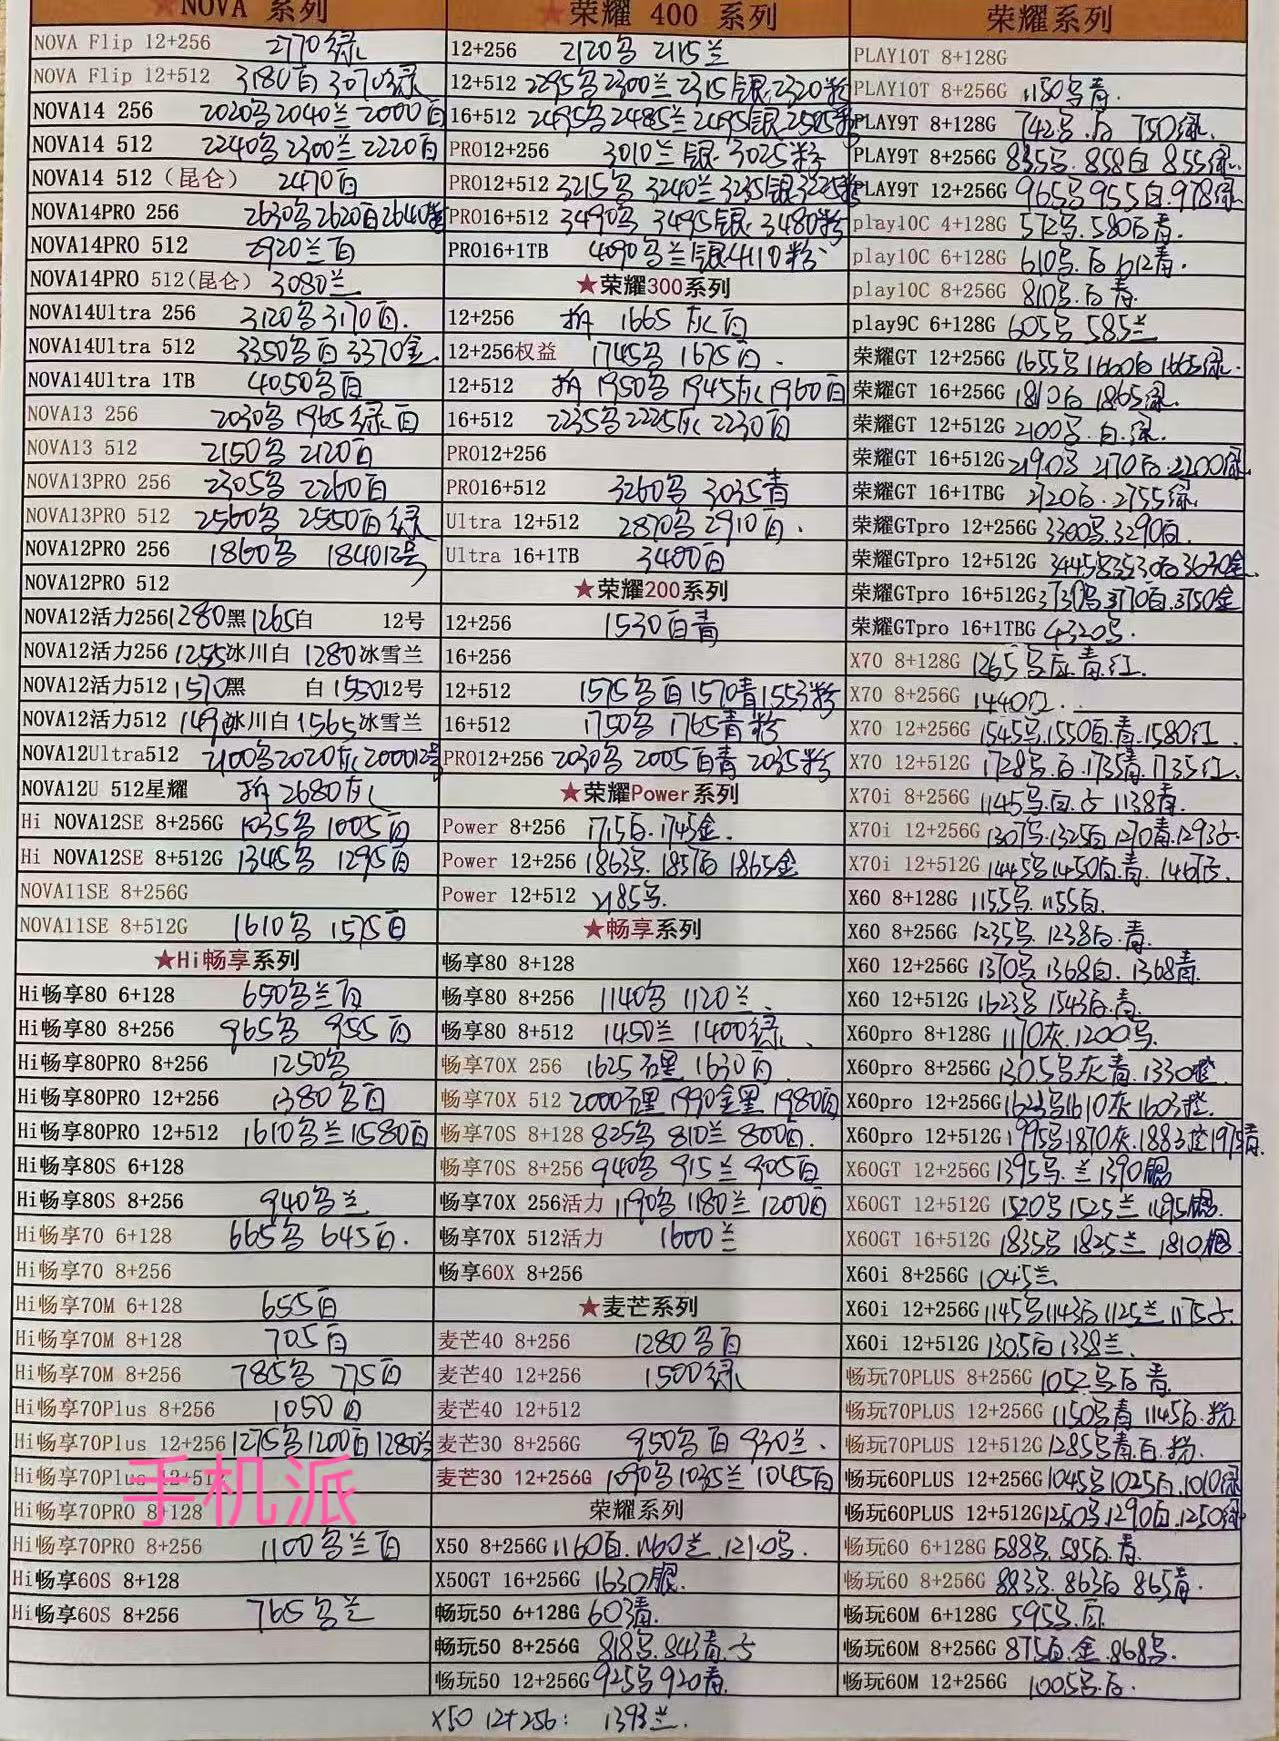 ★NOVA 系列
NOVA Flip 12+256 2770绿
NOVA Flip 12+512 3180白 3070绿
NOVA14 256 2020乌 2040兰 2000白
NOVA14 512 2240乌 2300兰 2220白
NOVA14 512（昆仑） 2470白
NOVA14PRO 256 2630乌 2620白 2640粉
NOVA14PRO 512 2920兰白
NOVA14PRO 512(昆仑) 3080兰
NOVA14Ultra 256 3120乌 3170白.
NOVA14Ultra 512 3350乌白 3370金
NOVA14Ultra 1TB 4050乌白
NOVA13 256 2030乌 1965绿白
NOVA13 512 2150乌 2120白
NOVA13PRO 256 2305乌 2260白
NOVA13PRO 512 2560乌 2550白绿
NOVA12PRO 256 1860乌 184012号
NOVA12PRO 512
NOVA12活力256 1280黑 1265白 12号
NOVA12活力256 1255冰川白 1280冰雪兰
NOVA12活力512 1570黑 白 1550 12号
NOVA12活力512 1490冰川白 1565冰雪兰
NOVA12Ultra512 2100乌 2020灰 200012号
NOVA12U 512星耀 拆 2680灰
Hi NOVA12SE 8+256G 1035乌 1005白
Hi NOVA12SE 8+512G 1345乌 1295白
NOVA11SE 8+256G
NOVA11SE 8+512G 1610乌 1575白
★Hi畅享系列
Hi畅享80 6+128 650乌兰白
Hi畅享80 8+256 965乌 955白
Hi畅享80PRO 8+256 1250乌
Hi畅享80PRO 12+256 1380乌白
Hi畅享80PRO 12+512 1610乌兰 1580白
Hi畅享80S 6+128
Hi畅享80S 8+256 940乌兰
Hi畅享70 6+128 665乌 645白.
Hi畅享70 8+256
Hi畅享70M 6+128 655白
Hi畅享70M 8+128 705白
Hi畅享70M 8+256 785乌 775白
Hi畅享70Plus 8+256 1050白
Hi畅享70Plus 12+256 1275乌 1200白 1280兰
Hi畅享70Plus 12+51
手机派
Hi畅享70PRO 8+128
Hi畅享70PRO 8+256 1100乌兰白
Hi畅享60S 8+128
Hi畅享60S 8+256 765乌兰
★荣耀 400 系列
12+256 2120乌 2115兰
12+512 2295乌 2300兰 2315银 2320粉
16+512 2495乌 2485兰 2495银 2505粉
PRO12+256 3010兰银 3025粉
PRO12+512 3215乌 3240兰 3235银 3225粉
PRO16+512 3490乌 3495银 3480粉
PRO16+1TB 4090乌兰银 4110粉
★荣耀300系列
12+256 拆 1665灰白
12+256权益 1745乌 1675白.
12+512 拆 1950乌 1945灰 1960白
16+512 2235乌 2225灰 2230白
PRO12+256
PRO16+512 3260乌 3035青
Ultra 12+512 2870乌 2910白.
Ultra 16+1TB 3400白
★荣耀200系列
12+256 1530白青
16+256
12+512 1575乌白 1570青 1553粉
16+512 1750乌 1765青粉
PRO12+256 2030乌 2005白青 2035粉
★荣耀Power系列
Power 8+256 1715白. 1745金.
Power 12+256 1863乌. 1857白 1865金
Power 12+512 2185乌.
★畅享系列
畅享80 8+128
畅享80 8+256 1140乌 1120兰
畅享80 8+512 1450兰 1400绿
畅享70X 256 1625石黑 1630白
畅享70X 512 2000石黑 1990金黑 1980白
畅享70S 8+128 825乌 810兰 800白.
畅享70S 8+256 940乌 915兰 905白
畅享70X 256活力 1190乌 1180兰 1200白
畅享70X 512活力 1600兰
畅享60X 8+256
★麦芒系列
麦芒40 8+256 1280乌白
麦芒40 12+256 1500绿
麦芒40 12+512
麦芒30 8+256G 950乌白 930兰.
麦芒30 12+256G 1090乌 1035兰 1045白
荣耀系列
X50 8+256G 1160白. 1160兰. 1210乌.
X50GT 16+256G 1630银.
畅玩50 6+128G 603青.
畅玩50 8+256G 818乌. 843青
畅玩50 12+256G 925乌 920青.
X50 12+256: 1393兰.
荣耀系列
PLAY10T 8+128G
PLAY10T 8+256G 1150乌青.
PLAY9T 8+128G 742乌.白 750绿.
PLAY9T 8+256G 835乌. 858白 855绿.
PLAY9T 12+256G 965乌 955白. 978绿
play10C 4+128G 572乌. 580白青.
play10C 6+128G 610乌.白 612青.
play10C 8+256G 810乌.白 青.
play9C 6+128G 605乌 585兰
荣耀GT 12+256G 1655乌 1660白 1665绿.
荣耀GT 16+256G 1810白 1865绿.
荣耀GT 12+512G 2100乌.白.绿.
荣耀GT 16+512G 2190乌 2170白. 2200绿
荣耀GT 16+1TBG 2720白. 2755绿
荣耀GTpro 12+256G 3300乌. 3290白.
荣耀GTpro 12+512G 3445乌 3530白 3670金
荣耀GTpro 16+512G 3730乌 3770白. 3750金
荣耀GTpro 16+1TBG 4320乌.
X70 8+128G 1265乌白.青.红.
X70 8+256G 1440红.
X70 12+256G 1545乌. 1550白.青. 1580红.
X70 12+512G 1728乌.白. 1735青. 1735红.
X70i 8+256G 1145乌.白. 1138青.
X70i 12+256G 1307乌. 1325白 1270青. 1293
X70i 12+512G 1445乌 1450白.青. 1467
X60 8+128G 1155乌. 1155白.
X60 8+256G 1235乌. 1238白.青.
X60 12+256G 1370乌 1368白. 1368青.
X60 12+512G 1623乌 1543白.青.
X60pro 8+128G 1170灰. 1200乌.
X60pro 8+256G 1305乌灰青. 1330橙.
X60pro 12+256G 1623乌 1610灰 1603橙.
X60pro 12+512G 1995乌. 1870灰. 1883橙 1975青.
X60GT 12+256G 1395乌.兰 1390银
X60GT 12+512G 1520乌 1525兰 1495银.
X60GT 16+512G 1835乌 1825兰 1810银.
X60i 8+256G 1045兰.
X60i 12+256G 1145乌 1143白 1125兰 1175
X60i 12+512G 1305白 1338兰.
畅玩70PLUS 8+256G 1052乌白青.
畅玩70PLUS 12+256G 1150乌青 1145白.粉
畅玩70PLUS 12+512G 1285乌青.白.粉.
畅玩60PLUS 12+256G 1045乌 1025白. 1010绿
畅玩60PLUS 12+512G 1250乌. 1290白. 1250绿
畅玩60 6+128G 588乌. 585白.青.
畅玩60 8+256G 883乌. 863白 865青.
畅玩60M 6+128G 595乌.白.
畅玩60M 8+256G 875白.金. 868乌.
畅玩60M 12+256G 1005乌.白.